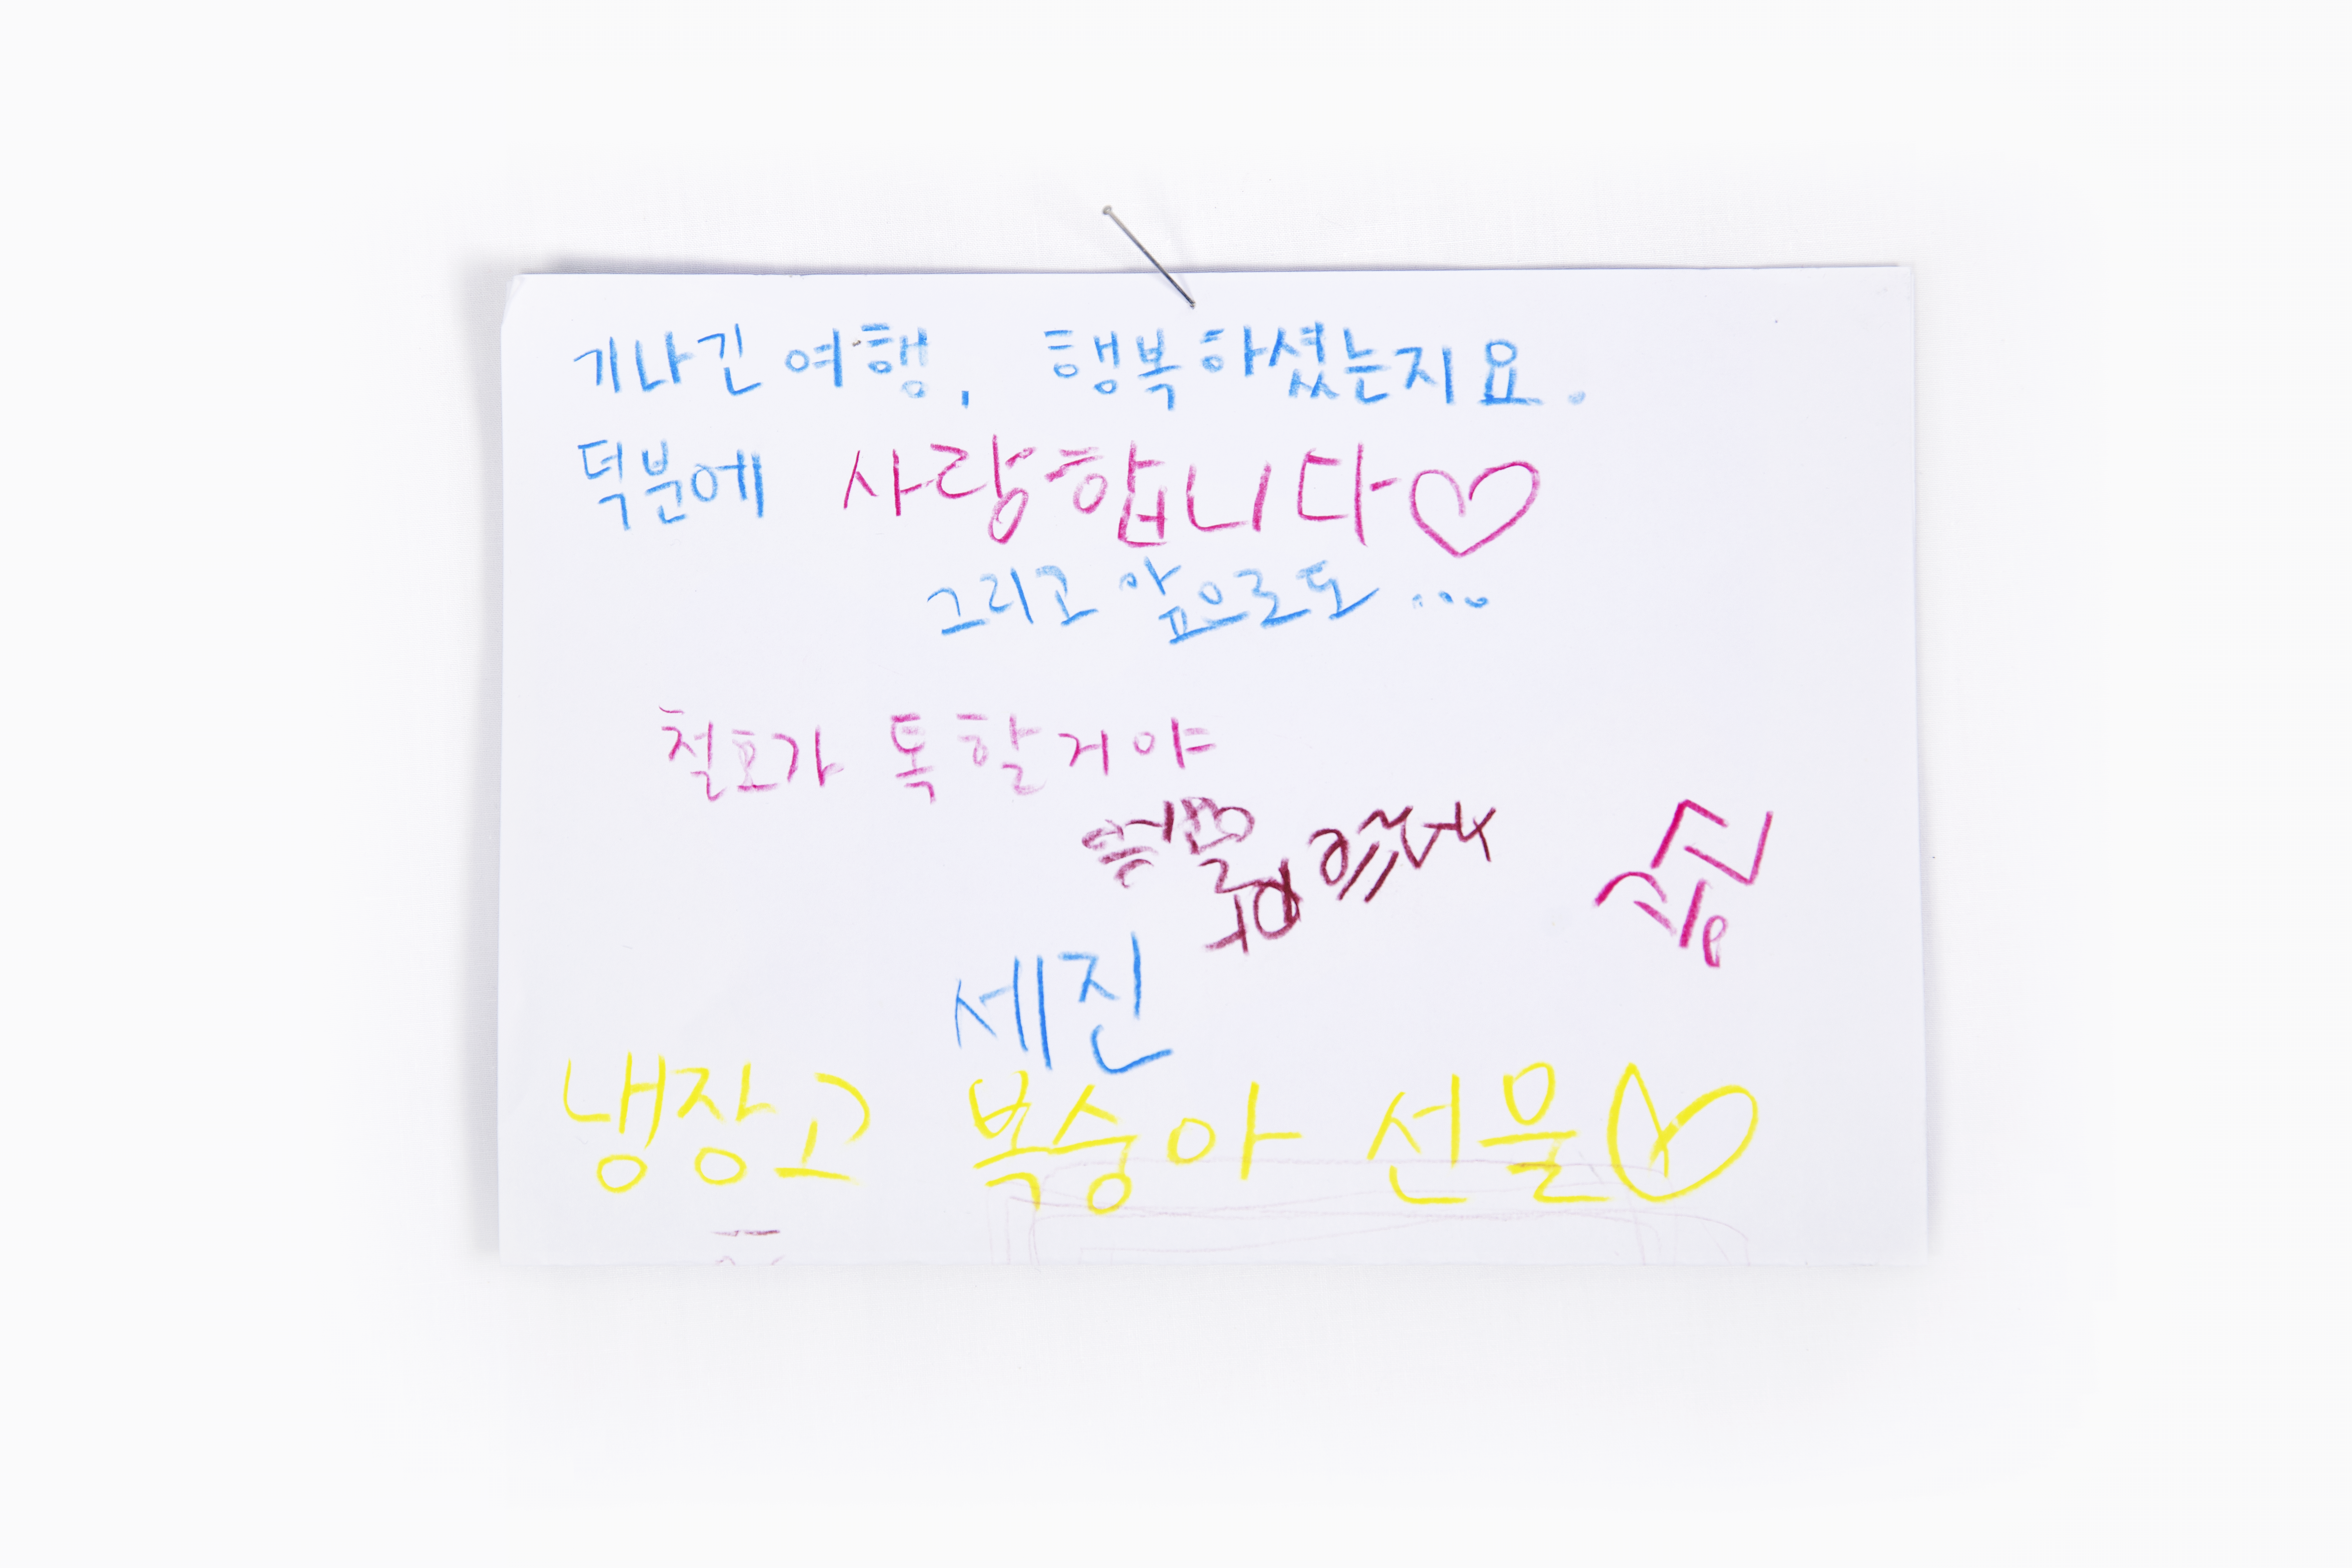 기나긴 여행, 행복하셨는지요.
덕분에 사랑합니다♡
그리고 앞으로도...
철호가 톡 할거야
세진
냉장고 복숭아 선물♡